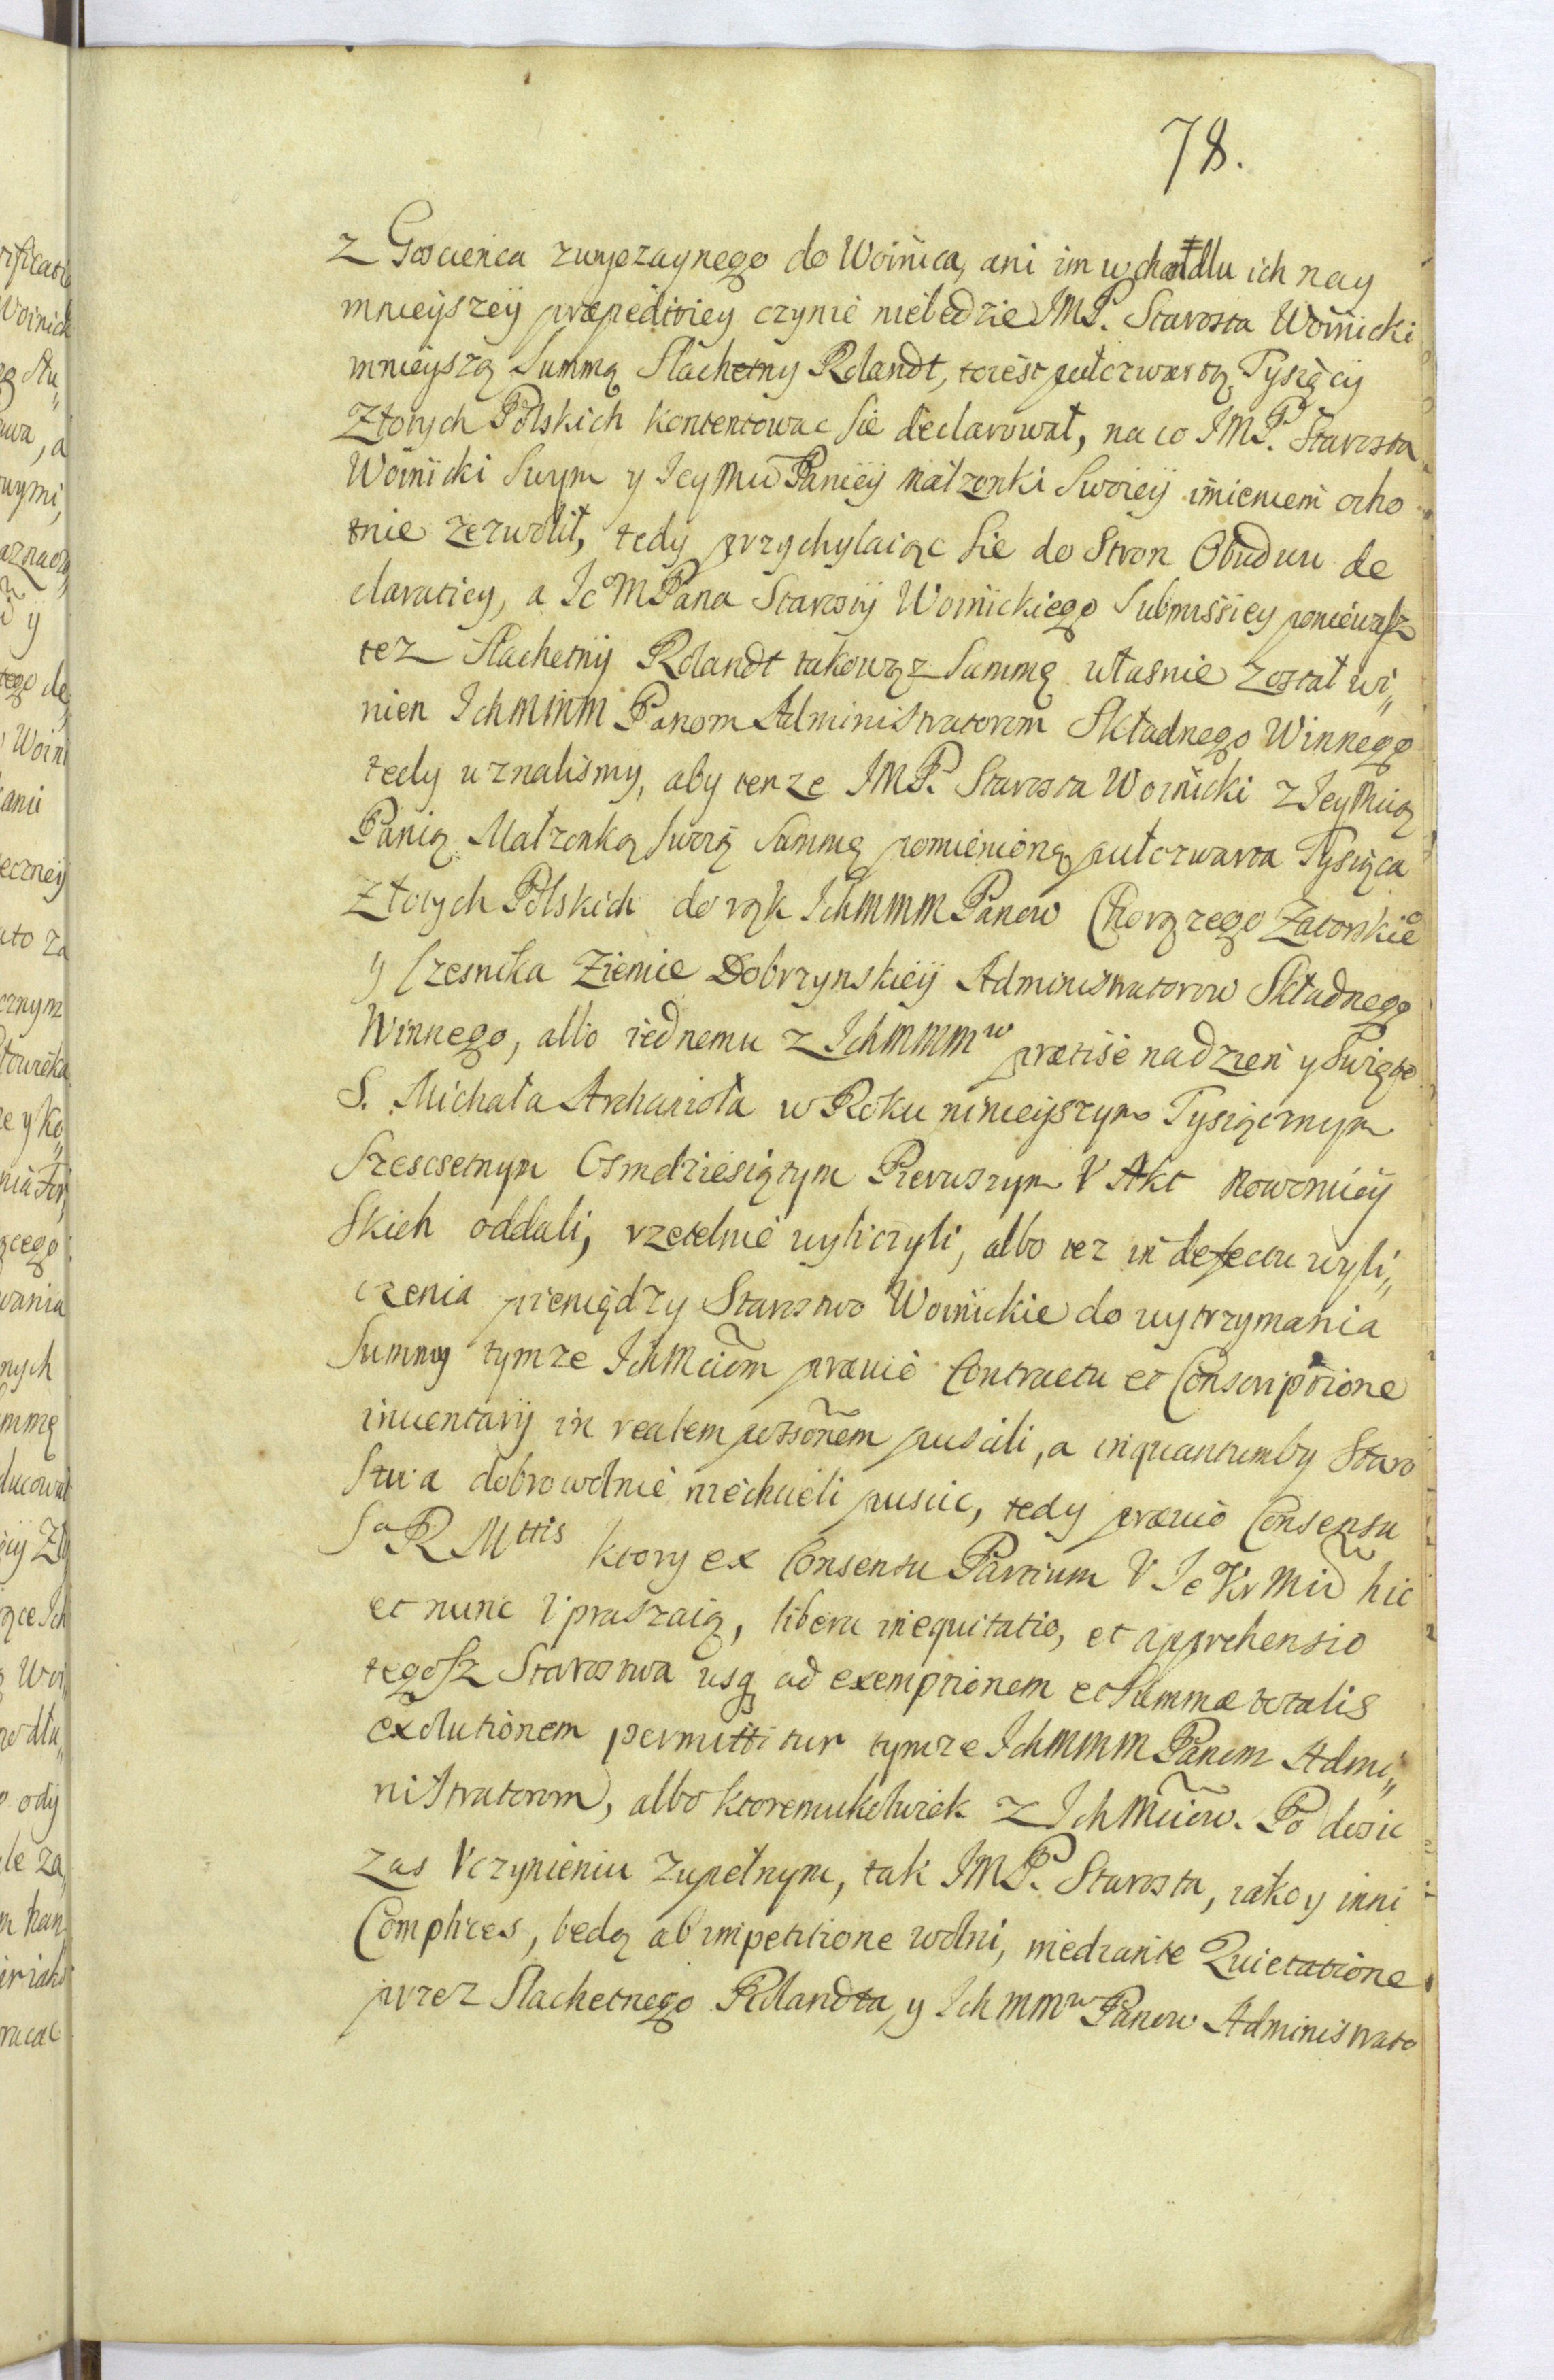 78.
z Goscienca zwyczaynego do Woinica, ani im w chandlu ich nay
mnieyszeÿ præpeditiey czynić niebedzie JMP. Starosta Woinicki
mnieyszą Summą Slachetny Rolandt, toiest pułczwartą Tysiący
Złotych Polskich kontentowac sie declarował, na co JMP. Starosta
Woinicki Swym y Jey Mci Panieÿ Małzonki Swoieÿ imieniem ocho
tnie zezwolił, tedy przychylaiąc sie do Stron Obudwu de
claratiey, a Jeo M Pana Starosty Woinickiego Submissiey poniewasz
tez Slachetnÿ Rolandt takowąz Summę własnie został wi„
nien Jchmmm Panom Administratorom Składnego Winnego
tedy uznalismy, aby tenze JMP. Starosta Woinicki z Jey Mcią
Panią Małzonką swoią Summę pomienioną pułczwarta Tysiąca
Złotych Polskich do rąk Jchmmm Panow Chorązego Zatorskieo
y Czesnika Ziemie Dobrzynskieÿ Administratorow Składnego
Winnego, albo iednemu z Jchmmmw præcise na dzien y Swięto
S. Michała Archanioła w Roku ninieyszym Tysiącznym
Szescsetnym Osmdziesiątym Pierwszym V Akt Nowomieÿ
skich oddali, rzetelnie wyliczyli, albo tez in defectu wyli„
czenia pieniędzy Starostwo Woinickie do wytrzymania
Summy tymze Jchmciom prævio Contractu et Conscriptione
inventarÿ in realem possonem puscili, a inquantumby Staro
stwa dobrowolnie niechcieli puscic, tedy prævio Consensu
Sa R Mttis ktory ex Consensu Partium V Je Kr Mci hic
et nunc Vpraszaią, libera inequitatio, et apprehensio
tegosz Starostwa usq ad exemptionem et Summæ totalis
exolutionem permittitur tymze Jchmmm Panom Admi„
nistratorom, albo ktoremukolwiek z Jchmciow. Po dosic
zas Vczynieniu zupełnym, tak JMP. Starosta, iako y inni
Complices, bedą ab impetitione wolni, miedzante Quietatione
przez Slachetnego Rolandta, y Jchmmw Panow Administrato